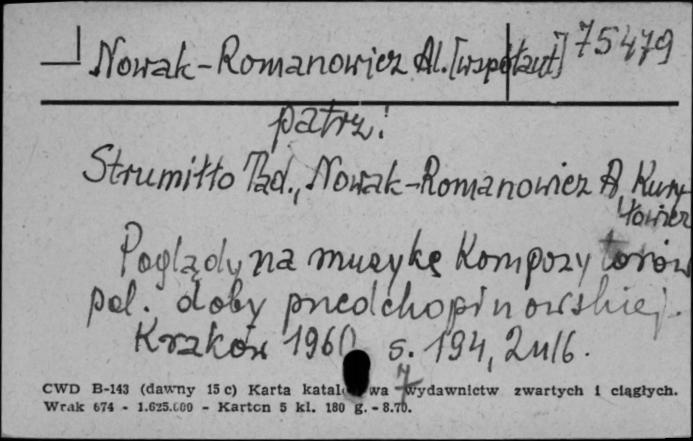 Nowak-Romanowicz Al. [współaut] 75479
patrz:
Strumiłło Tad., Nowak-Romanowicz A Kury
łowicz
Poglądy na muzykę kompozytorów
pol. doby przedchopinowskiej.
Kraków 1960 s. 194,
7
CWD B-143 (dawny 15 c) Karta katalogowa wydawnictw zwartych i ciągłych.
Wrak 674 - 1.625.000 - Karton 5 kl. 180 g. - 8.70.